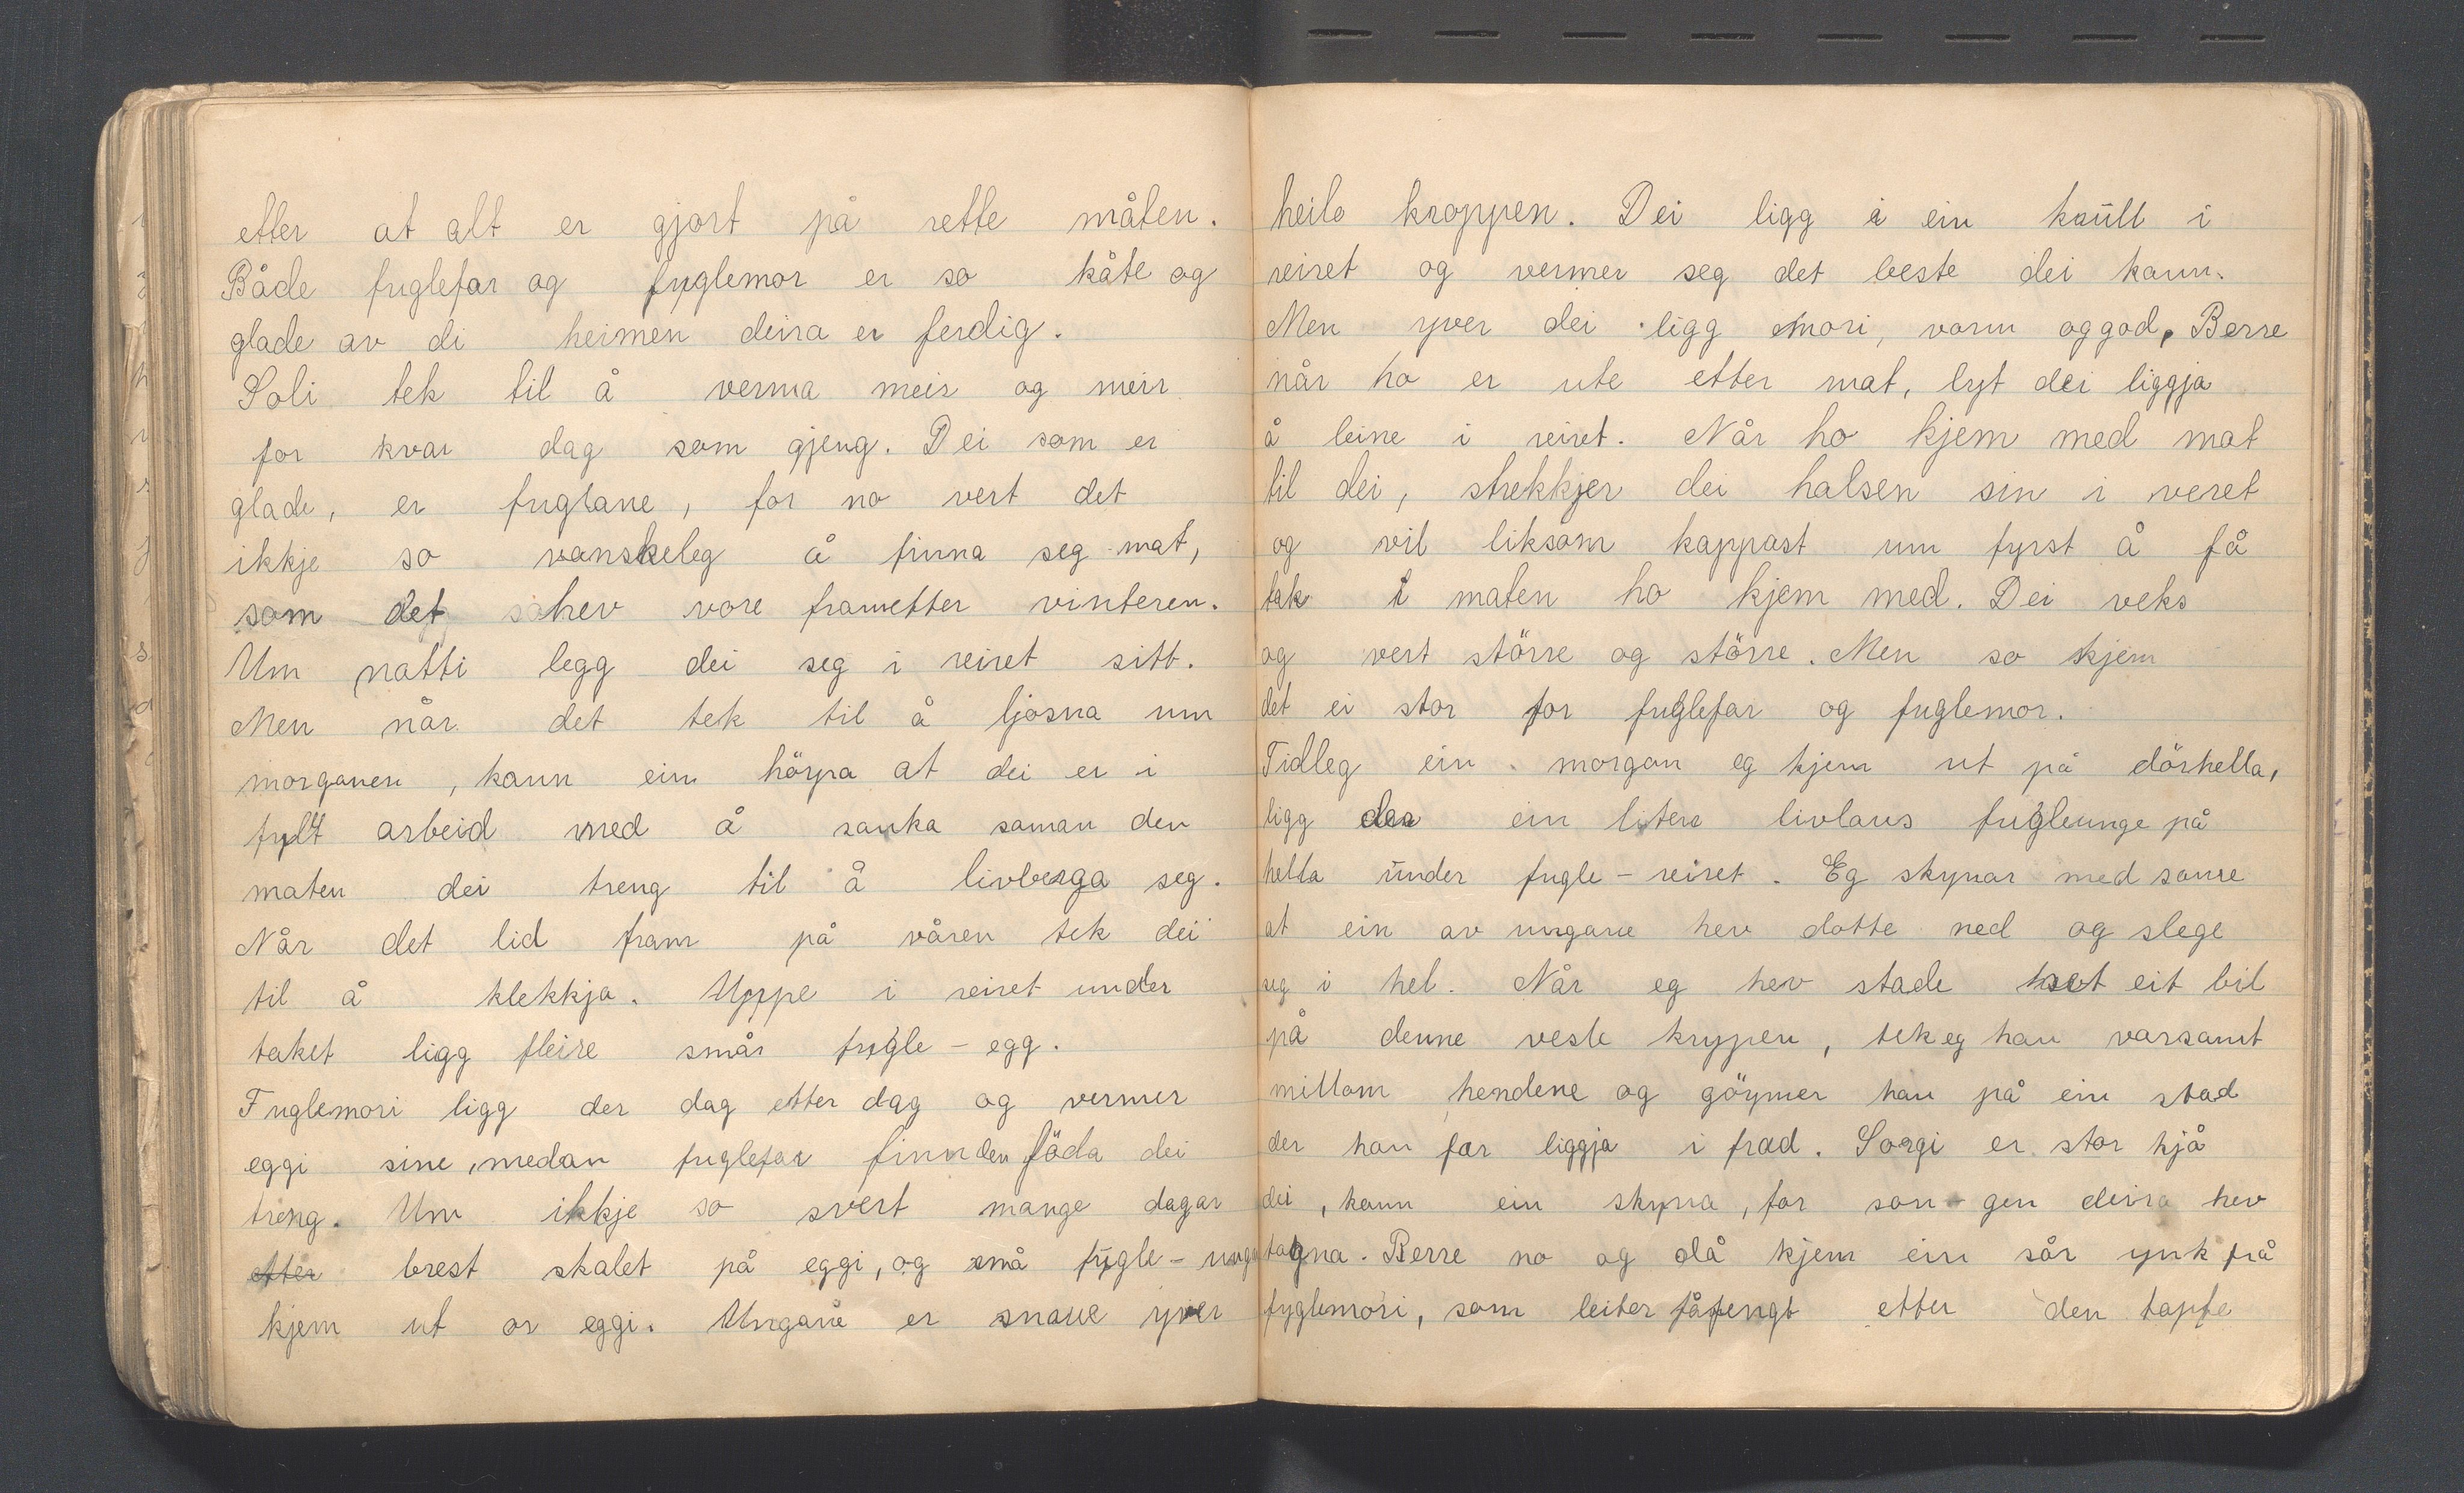 etter at alt er gjort på rette måten.
Både fuglefar og fuglemor er so kåte og
glade av di heimen deira er ferdig.
Soli tek til å verma meir og meir
for kvar dag som gjeng. Dei som er
glade, er fuglane, for no vert det
ikkje so vanskeleg å finna seg mat,
som det hev vore frametter vinteren.
Um natti legg dei seg i reiret sitt.
Men når det tek til å ljosna um
morganen, kann ein höyra at dei er i
fult arbeid med å sanka saman den
maten dei treng til å livberga seg.
Når det lid fram på våren tek dei
til å klekkja. Uppe i reiret under
taket ligg fleire smår fugle-egg.
Fuglemori ligg der dag etter dag og vermer
eggi sine, medan fuglefar finn den föda dei
treng. Um ikkje so svert mange dagar
etter brest skalet på eggi, og små fugle-unga
kjem ut or eggi. Ungane er snaue yver
heile kroppen. Dei ligg i ein krull i
reiret og vermer seg det beste dei kann.
Men yver dei ligg mori, varm og god. Berre
når ho er ute etter mat, lyt dei liggja
å leine i reiret. Når ho kjem med mat
til dei, strekkjer dei halsen sin i veret
og vil liksom kappast um fyrst å få
tak i maten ho kjem med. Dei veks
og vert större og större. Men so kjem
det ei stor for fuglefar og fuglemor.
Tidleg ein morgon eg kjem ut på dörhella,
ligg der ein liten livlaus fugleunge på
hella under fugle-reiret. Eg skynar med same
at ein av ungane hev dotte ned og slege
seg i hel. Når eg hev stade eit bil
på denne vesle kryppen, tek eg han varsamt
millom hendene og göymer han på ein stad
der han fær liggja i fred. Sorgi er stor hjå
dei, kann ein skyna, for son-gen deira hev
tagna. Berre no og då kjem ein sår ynk frå
fuglemori, som leiter fåfengt etter den tapte